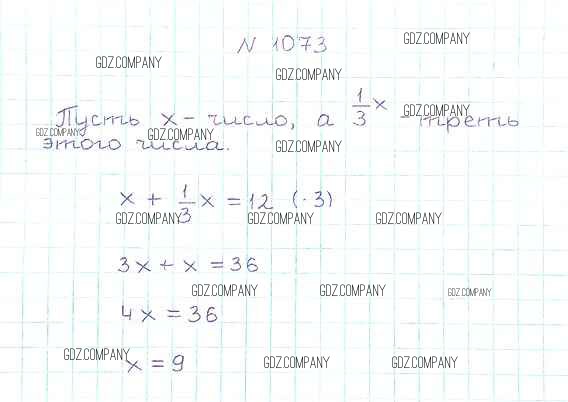 N 1073
GDZ.COMPANY
GDZ.COMPANY
GDZ.COMPANY
Пусть x - число, а 1/3 x - треть
GDZ.COMPANY
GDZ.COMPANY
GDZ.COMPANY
этого числа.
GDZ.COMPANY
x + 1/3 x = 12 (·3)
GDZ.COMPANY
GDZ.COMPANY
GDZ.COMPANY
3x + x = 36
GDZ.COMPANY
GDZ.COMPANY
GDZ.COMPANY
4x = 36
GDZ.COMPANY
x = 9
GDZ.COMPANY
GDZ.COMPANY